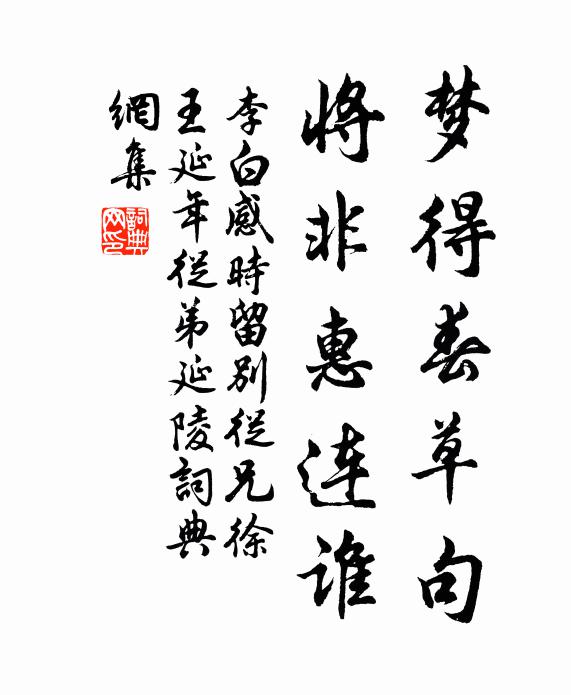 梦得春草句
将非惠连谁
李白感時留别從兄徐
王延年從弟延陵詞典
網集
詞典
网印